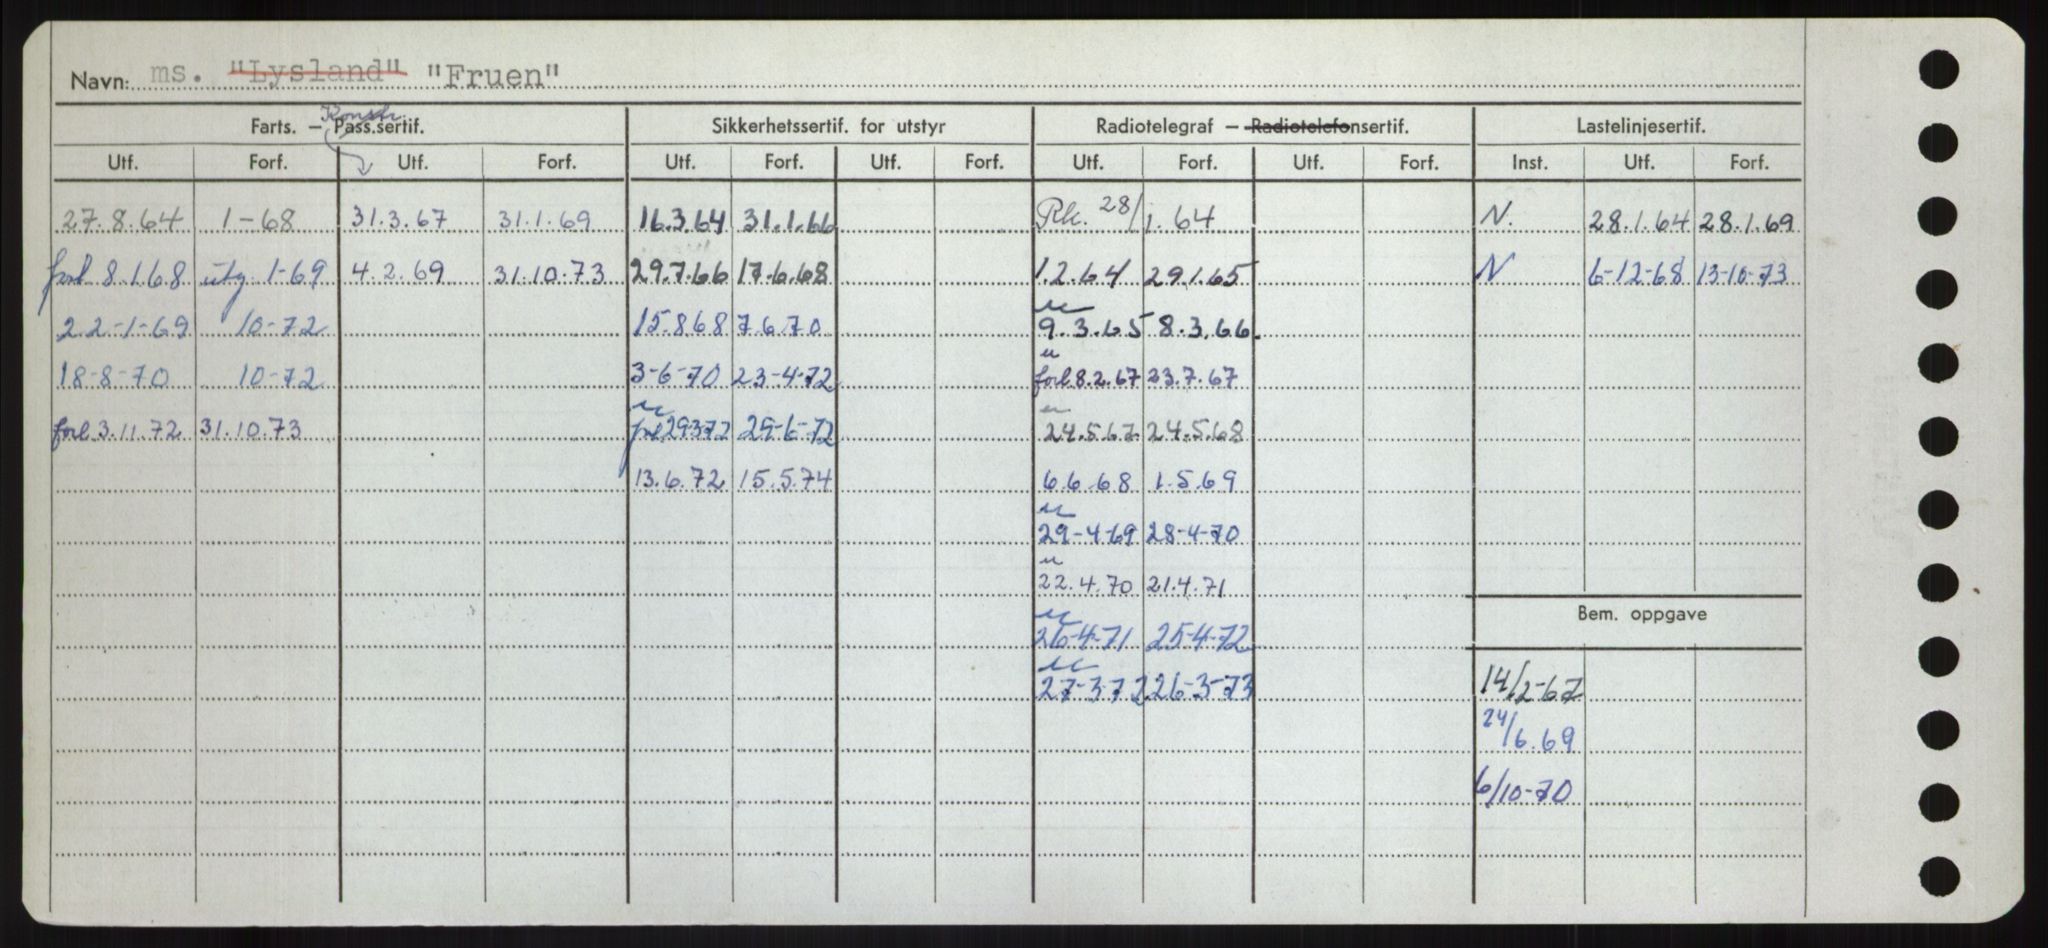 Navn: ms. "Lysland" "Fruen"
Konstr.
Farts. — Pass.sertif. Sikkerhetssertif. for utstyr Radiotelegraf — Radiotelefonsertif. Lastelinjesertif.
Utf. Forf. Utf. Forf. Utf. Forf. Utf. Forf. Utf. Forf. Utf. Forf. Inst. Utf. Forf.
27.8.64 1-68 31.3.67 31.1.69 16.3.64 31.1.66 Rk. 28/1.64 N. 28.1.64 28.1.69
forl 8.1.68 utg. 1-69 4.2.69 31.10.73 29.7.66 17.6.68 1.2.64 29.1.65 N 6-12-68 13-10-73
22-1-69 10-72 15.8.68 7.6.70 9.3.65 8.3.66.
18-8-70 10-72 3-6-70 23-4-72 forl 8.2.67 23.7.67
forl 3.11.72 31.10.73 29-3-72 29-6-72 24.5.67 24.5.68
13.6.72 15.5.74 6.6.68 1.5.69
29-4-69 28-4-70
22.4.70 21.4.71
Bem. oppgave
26-4-71 25-4-72
27-3-72 26-3-73 14/2-67
24/6.69
6/10-70